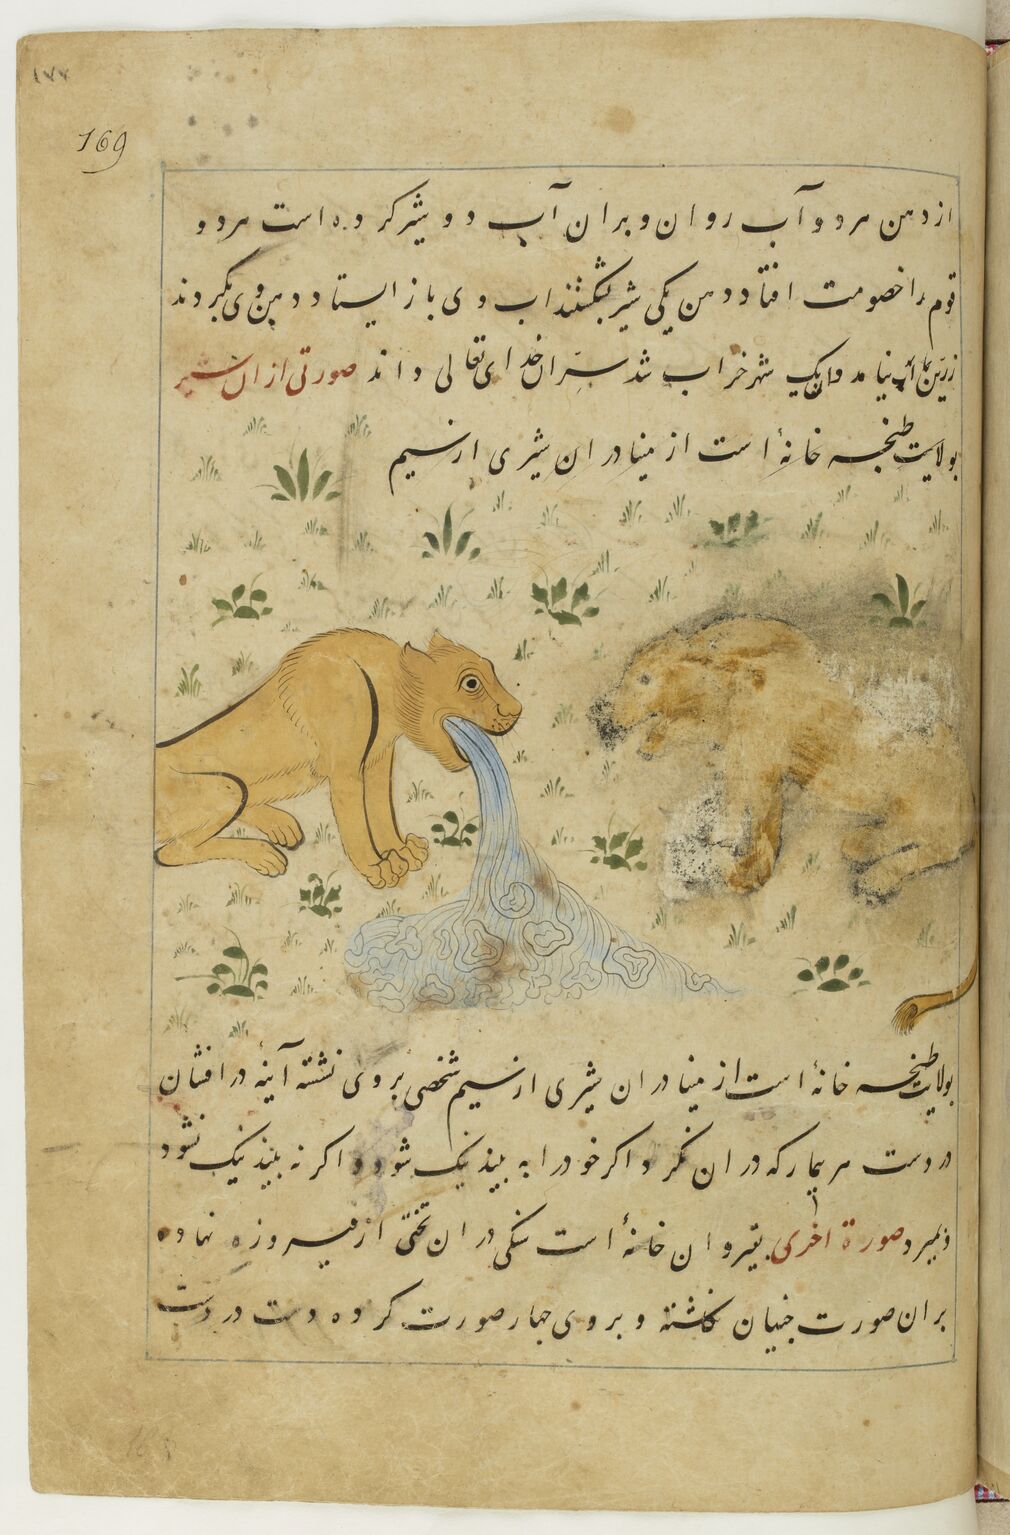 ۱۷۷
169
از دهن هر دو آب روان و بر ان آب دو شیر کرده است هر دو
قوم را خصومت افتاد دهن یکی شیر بشکستند اب وی باز ایستاد دهن وی بکردند
زرین آب نیامد و ان یک شهر خراب شد سر ان خدای تعالی داند صورتی از ان شیر
بولایت طنجه خانهٔ است از مینا در ان شیری از سیم
بولایت طنجه خانهٔ است از مینا در ان شیری از سیم شخصی بر وی نشسته آینهٔ درافشان
در دست هر بیمار که در ان نکرد اکر خود را به بیند نیک شود و اکر نه بیند نیک نشود
و بمیرد صورة اخری بقیروان خانهٔ است سنکی در ان تختی از فیروزه نهاده
بر ان صورت جنیان نکاشته و بر وی چهار صورت کرده دست در دست